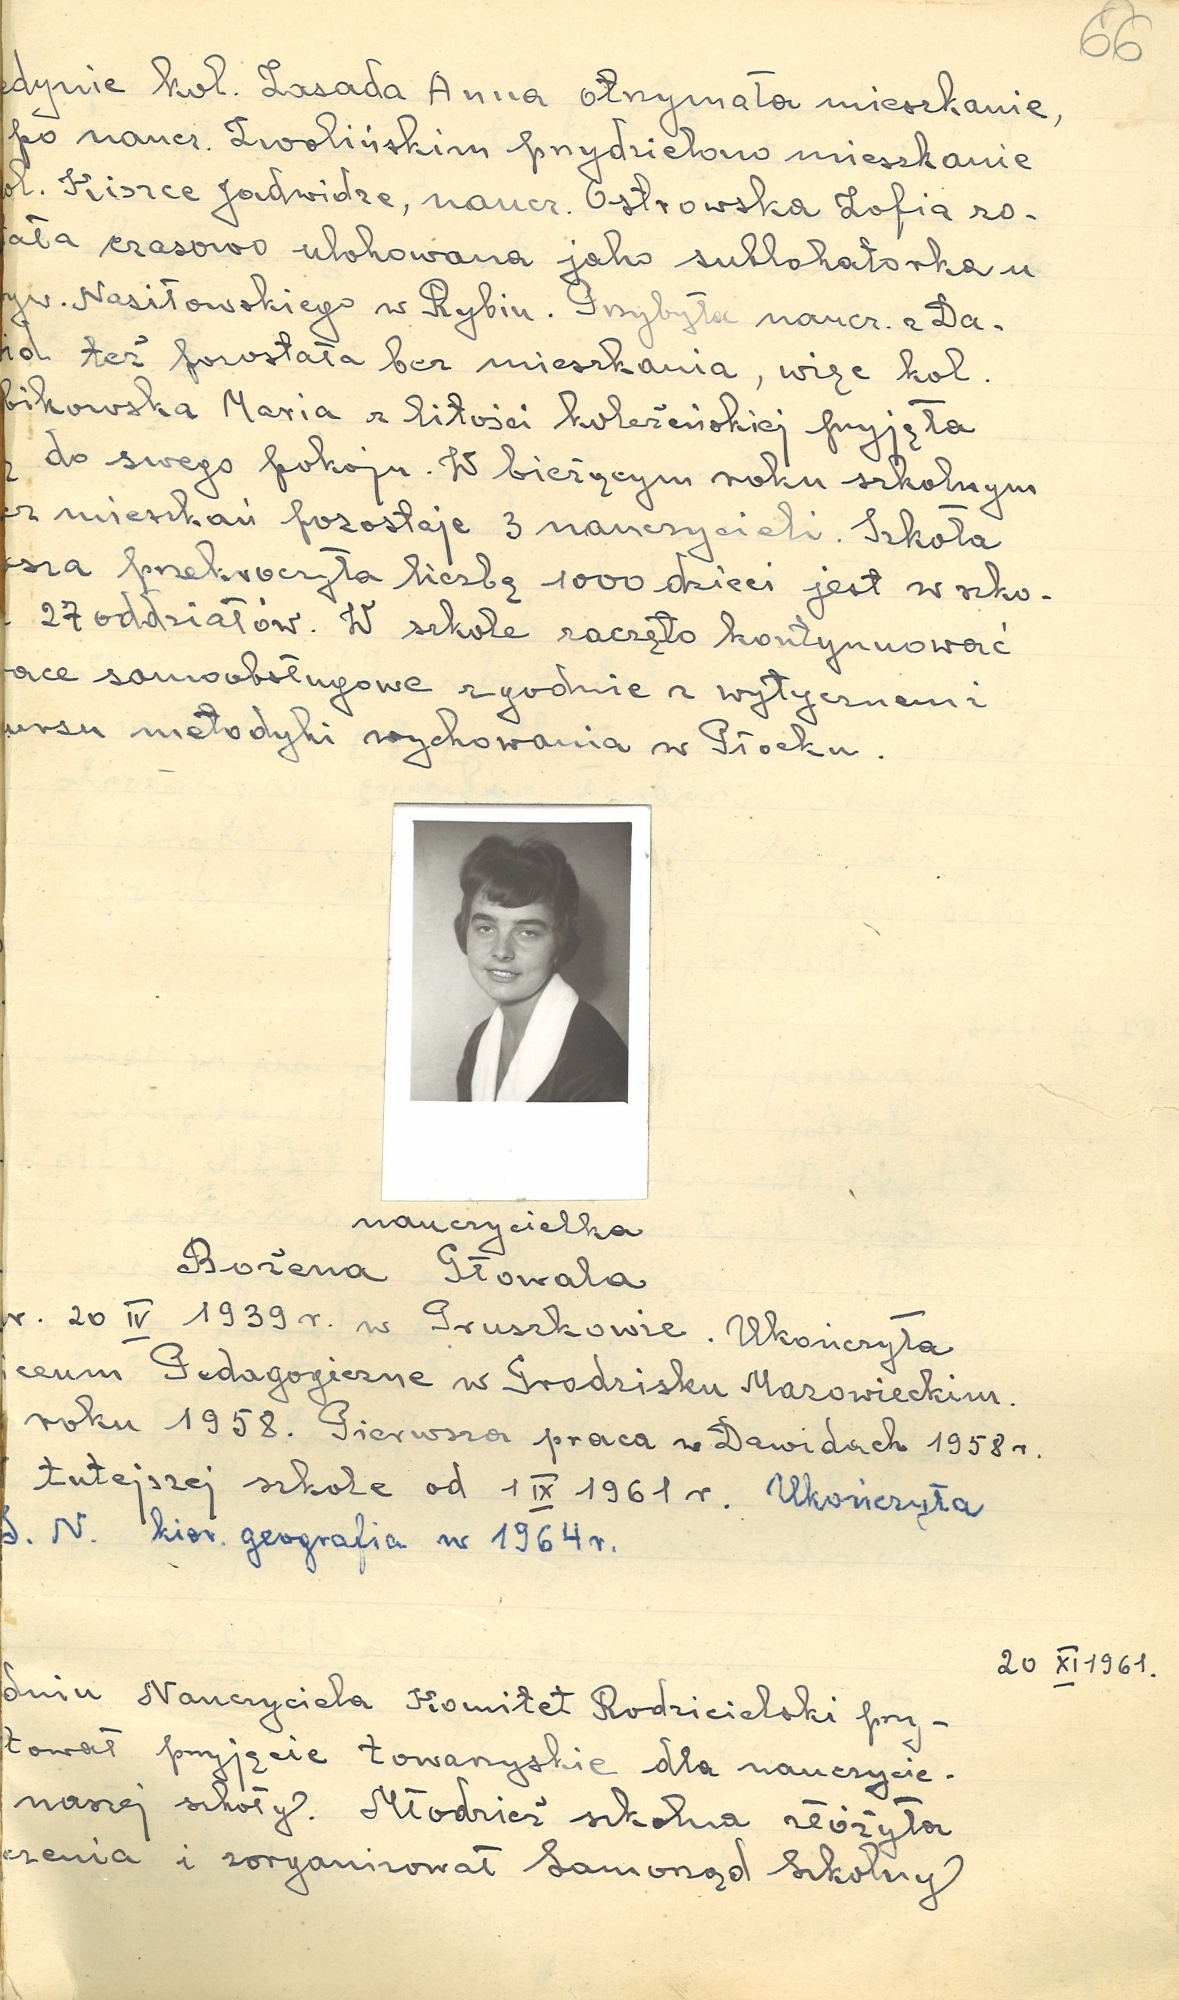 66
edynie kol. Zasada Anna otrzymała mieszkanie,
po naucz. Zwolińskim przydzielono mieszkanie
ol. Kiszce Jadwidze, naucz. Ostrowska Zofia zo-
ała czasowo ulokowana jako sublokatorka u
yw. Nasiłowskiego w Rybiu. Przybyła naucz. z Da-
id też pozostała bez mieszkania, więc kol.
bikowska Maria z litości koleżeńskiej przyjęła
ą do swego pokoju. W bieżącym roku szkolnym
ez mieszkań pozostaje 3 nauczycieli. Szkoła
asza przekroczyła liczbę 1000 dzieci jest w szko-
27 oddziałów. W szkole zaczęto kontynuować
race samoobsługowe zgodnie z wytycznemi
ursu metodyki wychowania w Płocku.
nauczycielka
Bożena Głowala
r. 20 IV 1939 r. w Pruszkowie. Ukończyła
iceum Pedagogiczne w Grodzisku Mazowieckim.
roku 1958. Pierwsza praca w Dawidach 1958 r.
tutejszej szkole od 1 IX 1961 r. Ukończyła
S. N. kier. geografia w 1964 r.
20 XI 1961.
dniu Nauczyciela Komitet Rodzicielski przy-
tował przyjęcie towarzyskie dla nauczycie-
naszej szkoły. Młodzież szkolna złóżyła
czenia i zorganizował Samorząd Szkolny